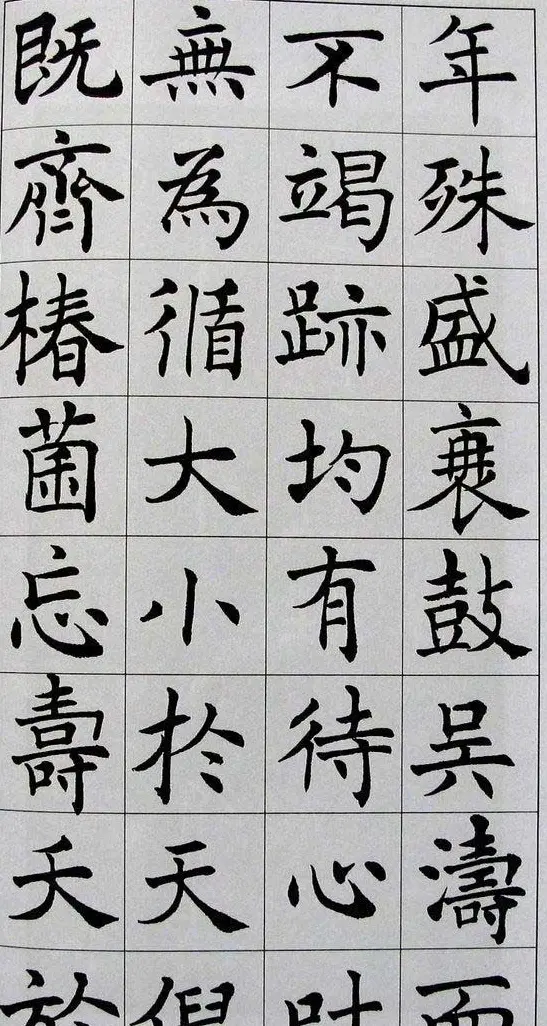 年殊盛衰鼓吳濤而
不竭跡均有待心叶
無為循大小於天倪
既齊椿菌忘壽夭於